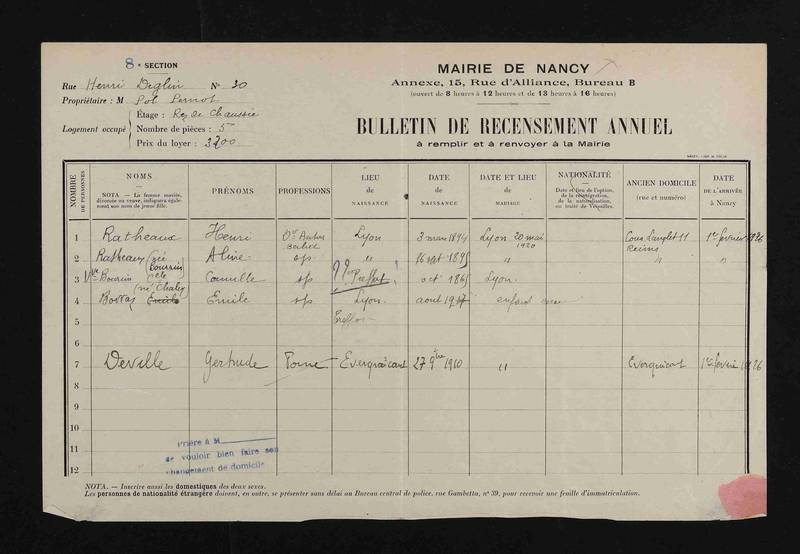 8e SECTION
Rue Henri Déglin N° 20
Propriétaire : M Pol Pernot
Étage : Rez de Chaussée
Logement occupé
Nombre de pièces : 5
Prix du loyer : 3200
MAIRIE DE NANCY
Annexe, 15, Rue d'Alliance, Bureau B
(ouvert de 8 heures à 12 heures et de 13 heures à 16 heures)
BULLETIN DE RECENSEMENT ANNUEL
à remplir et à renvoyer à la Mairie
NOMBRE DE PERSONNES
NOMS
NOTA. — La femme mariée, divorcée ou veuve, indiquera également son nom de jeune fille.
PRÉNOMS
PROFESSIONS
LIEU de NAISSANCE
DATE de NAISSANCE
DATE ET LIEU de MARIAGE
NATIONALITÉ
Date et lieu de l'option, de la réintégration, de la naturalisation, ou traité de Versailles.
ANCIEN DOMICILE
(rue et numéro)
DATE DE L'ARRIVÉE à Nancy
1 Ratheaux Henri Lyon 3 mars 1894 Lyon 20 mai 1920 11 Reims 1er février 1926
2 Ratheaux née Boursin Aline sp " 1895 " " "
3 Vve Boursin Camille sp oct 1865 Lyon
4 Emile Emile sp Lyon août enfant
5
6
7 Deville Gertrude 27 9bre 1910 " 1er 1926
8
9
10
11
12
Prière à M
de vouloir bien faire son
changement de domicile
NOTA. — Inscrire aussi les domestiques des deux sexes.
Les personnes de nationalité étrangère doivent, en outre, se présenter sans délai au Bureau central de police, rue Gambetta, n° 39, pour recevoir une feuille d'immatriculation.